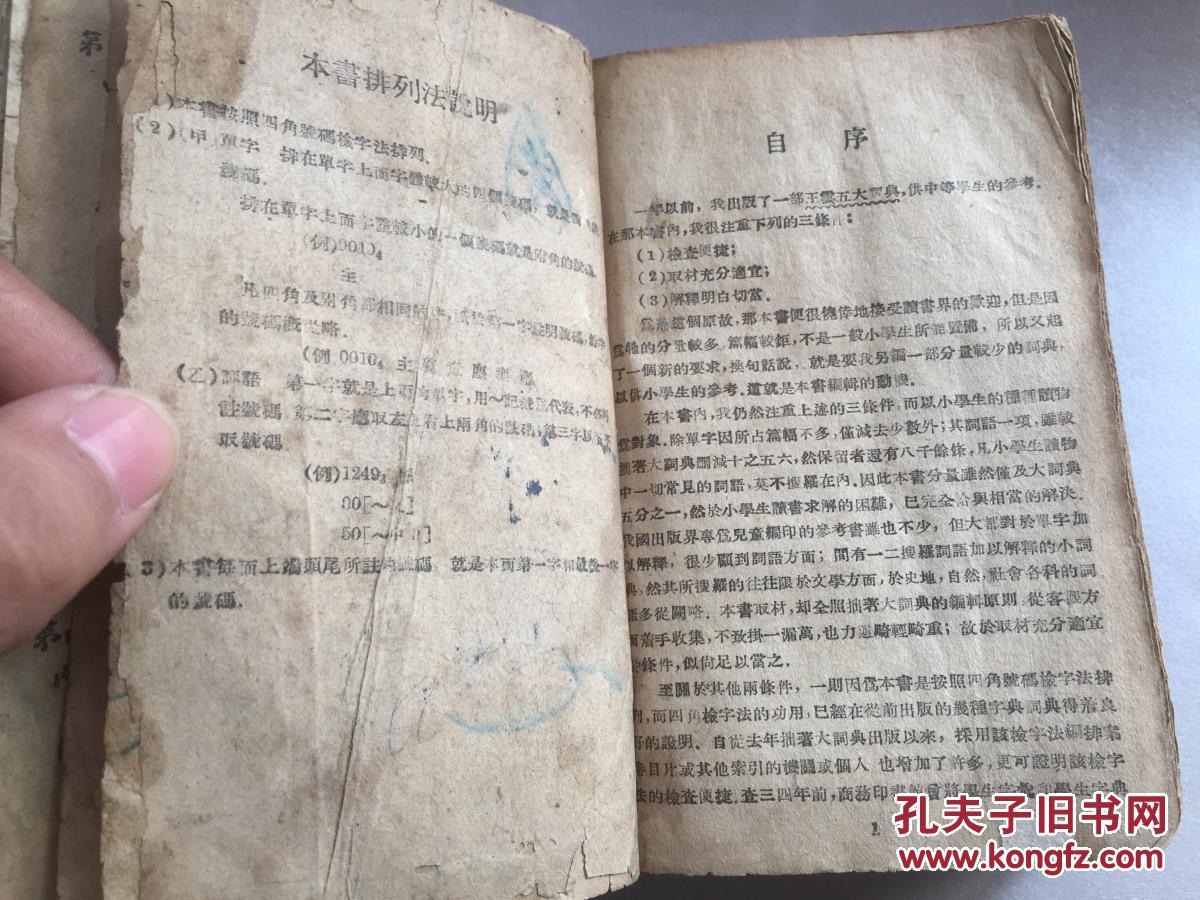 第
第
本書排列法說明
)本書按照四角號碼檢字法排列.
(2)(甲)單字 排在單字上面字體較大的四個號碼,就是四角的
號碼.
排在單字上面字體較小的一個號碼就是附角的號碼.
(例)0010₄
主
凡四角及附角都相同的字,祇於第一字註明號碼,餘字
的號碼概從略.
(例)0010₄ 主
(乙)詞語 第一字就是上面的單字,用～記號爲代表,不必再
註號碼.第二字應取左上右上兩角的號碼;第三字以下不
取號碼.
(例)1249₃
00[～
50[～
3)本書每面上端頭尾所註的號碼,就是本面第一字和最後一字
的號碼.
自序
一年以前,我出版了一部王雲五大詞典,供中等學生的參考.
在那本書內,我很注重下列的三條件:
(1)檢查便捷;
(2)取材充分適宜;
(3)解釋明白切當.
爲着這個原故,那本書便很僥倖地接受讀書界的歡迎,但是因
爲牠的分量較多,篇幅較鉅,不是一般小學生所能置備,所以又起
了一個新的要求,換句話說,就是要我另編一部分量較少的詞典,
以供小學生的參考.這就是本書編輯的動機.
在本書內,我仍然注重上述的三條件,而以小學生的種種讀物
爲對象.除單字因所占篇幅不多,僅減去少數外;其詞語一項,雖較
拙著大詞典刪減十之五六,然保留者還有八千餘條,凡小學生讀物
中一切常見的詞語,莫不搜羅在內.因此本書分量雖然僅及大詞典
五分之一,然於小學生讀書求解的困難,已完全給與相當的解決.
我國出版界專爲兒童編印的參考書雖也不少,但大都對於單字加
以解釋,很少顧到詞語方面;間有一二搜羅詞語加以解釋的小詞
典,然其所搜羅的往往限於文學方面,於史地,自然,社會各科的詞
語多從闕略.本書取材,却全照拙著大詞典的編輯原則,從客觀方
面着手收集,不致掛一漏萬,也力避畸輕畸重;故於取材充分適宜
條件,似尚足以當之.
至關於其他兩條件,一則因爲本書是按照四角號碼檢字法排
列,而四角檢字法的功用,已經在從前出版的幾種字典詞典得着良
好的證明.自從去年拙著大詞典出版以來,採用該檢字法編排案
卷目片或其他索引的機關或個人 也增加了許多,更可證明該檢字
法的檢查便捷.查三四年前,商務印書館曾將學生字彙和學生字典
1
孔夫子旧书网
www.kongfz.com